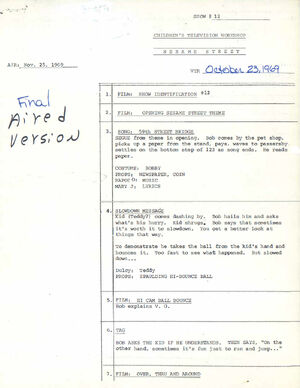 SHOW # 12
CHILDREN'S TELEVISION WORKSHOP
SESAME STREET
AIR: Nov. 25, 1969
VTR October 23, 1969
Final
Aired
Version
1. FILM: SHOW IDENTIFICATION #12
2. FILM: OPENING SESAME STREET THEME
3. SONG: 59th STREET BRIDGE
SEGUE from theme in opening. Bob comes by the pet shop,
picks up a paper from the stand, pays, waves to passersby
settles on the bottom step of 123 as song ends. He reads
paper.
COSTUME: BOBBY
PROPS: NEWSPAPER, COIN
MUSIC
MARY J, LYRICS
4. SLOWDOWN MESSAGE
Kid (Teddy?) comes dashing by. Bob hails him and asks
what's his hurry. Kid shrugs, Bob says that sometimes
it's worth it to slowdown. You get a better look at
things that way.
To demonstrate he takes the ball from the kid's hand and
bounces it. Too fast to see what happened. But slowed
down...
Dulcy: Teddy
PROPS: SPAULDING HI-BOUNCE BALL
5. FILM: HI CAM BALL BOUNCE
Bob explains V. O.
6. TAG
BOB ASKS THE KID IF HE UNDERSTANDS. THEN SAYS, "On the
other hand, sometimes it's fun just to run and jump..."
7. FILM: OVER, THRU AND AROUND